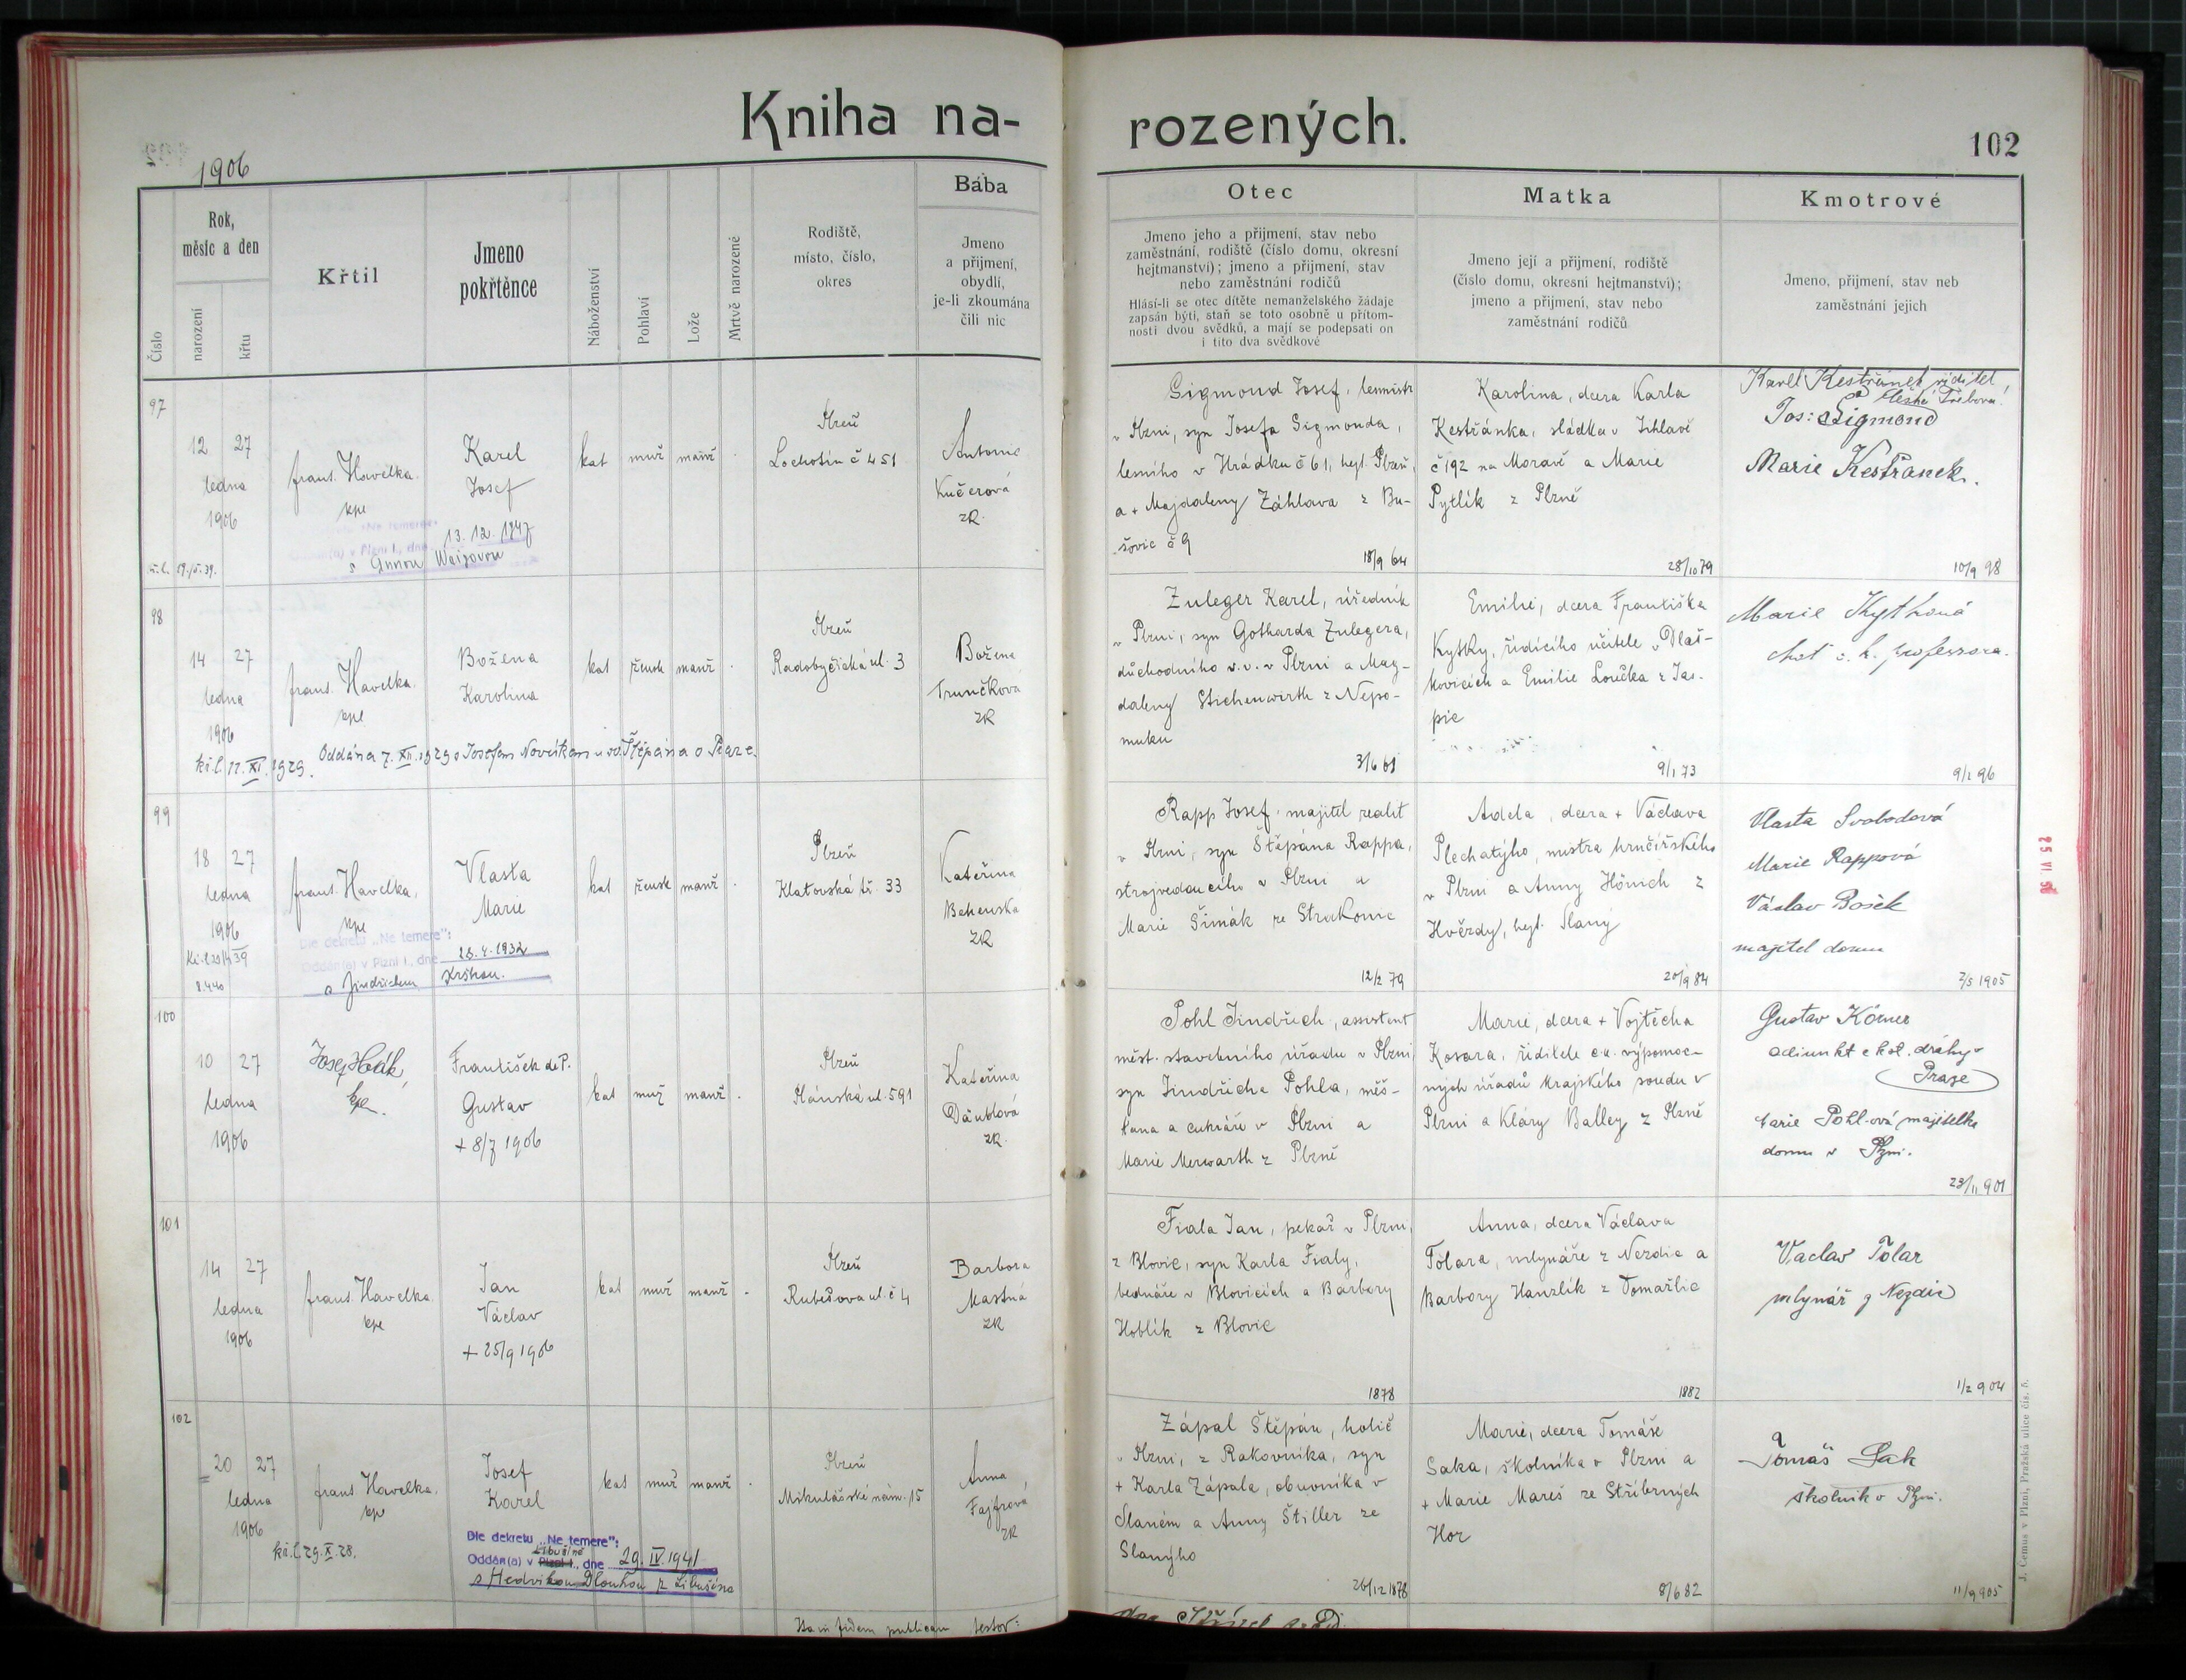 Kniha na-
rozených.
102
1906
Číslo
Rok,
měsíc a den
narození
křtu
Křtil
Jmeno
pokřtěnce
Náboženství
Pohlaví
Lože
Mrtvě narozené
Rodiště,
místo, číslo,
okres
Bába
Jmeno
a přijmení,
obydlí,
je-li zkoumána
čili nic
Otec
Jmeno jeho a přijmení, stav nebo
zaměstnání, rodiště (číslo domu, okresní
hejtmanství); jmeno a přijmení, stav
nebo zaměstnání rodičů
Hlásí-li se otec dítěte nemanželského žádaje
zapsán býti, staň se toto osobně u přítom-
nosti dvou svědků, a mají se podepsati on
i tito dva svědkové
Matka
Jmeno její a přijmení, rodiště
(číslo domu, okresní hejtmanství);
jmeno a přijmení, stav nebo
zaměstnání rodičů
Kmotrové
Jmeno, přijmení, stav neb
zaměstnání jejich
97
12 27
ledna
1906
frant. Havelka
kpl
Karel
Josef
13. 12. 1947
s Annou
kat muž manž
Plzeň
Lochotín č 451
Antonie
Kučerová
zk.
Sigmond Josef,
v Plzni, syn Josefa Sigmonda,
lesního v Hrádku č 61, hejt. Plzeň,
a + Majdaleny Záhlava z Bu-
šovic č 9
18/9 64
Karolina, dcera Karla
Kestřánka, sládka v Jihlavě
č 192 na Moravě a Marie
Pytlík z Plzně
28/10 79
Karel Kestřánek ředitel,
Česká Třebová.
Jos: Sigmond
Marie Kestřanek.
10/9 98
98
14 27
ledna
1906
frant. Havelka
kpl
Božena
Karolina
kat žensk manž
Plzeň
Radobyčická ul. 3
Božena
Trunčková
zk
Oddána 7. XII. 1929 s Josefem Novákem u sv. Štěpána v Praze.
kř. l. 11. XI. 1929.
Zuleger Karel, úředník
v Plzni, syn Gotharda Zulegera,
důchodního v. v. v Plzni a Mag-
daleny Stichenwirth z Nepo-
muku
3/6 61
Emilie, dcera Františka
Kytky, řídícího učitele v Vlač-
kovicích a Emilie Loučka z
9/1 73
Marie
choť c. k. professora.
9/1 96
99
18 27
ledna
1906
frant. Havelka,
kpl
Vlasta
Marie
Dle dekretu „Ne temere":
Oddán(a) v Plzni I., dne 1932
s Jindřichem
kat žensk manž
Plzeň
Klatovská tř. 33
Kateřina
zk
Rapp Josef, majitel realit
v Plzni, syn Štěpána Rappa,
strojvedoucího v Plzni a
Marie Šimák ze Strakonic
12/2 79
Adela, dcera + Václava
Plechatýho, mistra hrnčířského
v Plzni a Anny Hönich z
Hvězdy, hejt. Slaný
20/9 84
Vlasta Svobodová
Marie Rappová
Václav Bošek
majitel domu
7/5 1905
25 VI. 50
100
10 27
ledna
1906
Josef
kpl.
František de P.
Gustav
+ 8/7 1906
kat muž manž
Plzeň
Plánská ul. 591
Kateřina
Däublová
zk.
Pohl Jindřich, assistent
měst. stavebního úřadu v Plzni,
syn Jindřicha Pohla, měš-
ťana a cukráře v Plzni a
Marie Merwarth z Plzně
Marie, dcera + Vojtěcha
Kosara, ředitele c.k. výpomoc-
ných úřadů krajského soudu v
Plzni a Kláry Balley z Plzně
Gustav Körner
adjunkt c k st. dráhy v
Praze
Marie Pohl-ová majitelka
domu v Plzni.
23/11 901
101
14 27
ledna
1906
frant. Havelka
kpl
Jan
Václav
+ 25/9 1906
kat muž manž
Plzeň
Rubešova ul. č 4
Barbora
Mastná
zk
Fiala Jan, pekař v Plzni,
z Blovic, syn Karla Fialy,
bednáře v Blovicích a Barbory
Hoblík z Blovic
1878
Anna, dcera Václava
Tolara, mlynáře z Nezdic a
Barbory Hanzlík z
1882
Vaclav Tolar
mlynář z Nezdic
1/2 904
102
20 27
ledna
1906
kř. l. 29. X. 28.
frant. Havelka,
kpl
Josef
Karel
Dle dekretu „Ne temere":
Libušíně
Oddán(a) v Plzni I., dne 29. IV. 1941
s Hedvikou Dlouhou z Libušína
kat muž manž
Plzeň
Mikulášské nám. 15
Anna
Fajfrová
zk
Zápal Štěpán, holič
v Plzni, z Rakovníka, syn
+ Karla Zápala, obuvníka v
Slaném a Anny Štiller ze
Slanýho
26/12 1878
Marie, dcera Tomáše
Saka, školníka v Plzni a
+ Marie Mareš ze Stříbrných
Hor
8/6 82
Tomáš Sak
školník v Plzni.
11/9 905
J. Čemus v Plzni, Pražská ulice čís. 8.